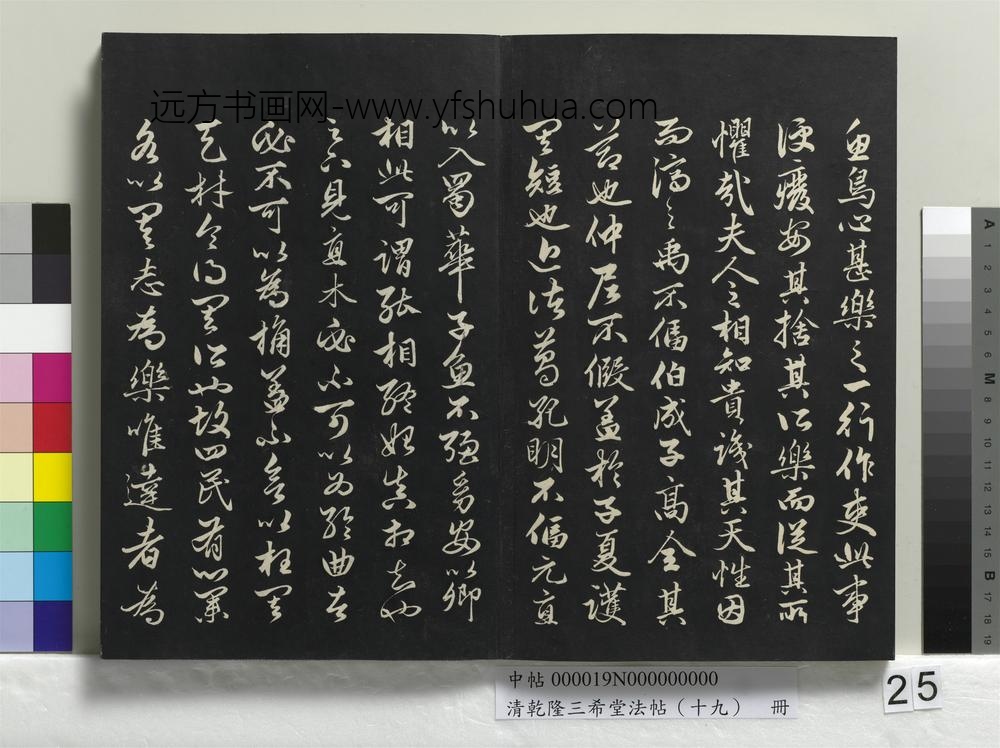 魚鳥心甚樂之一行作吏此事
便廢安能捨其所樂而從其所
懼哉夫人之相知貴識其天性因
而濟之禹不偪伯成子高全其
節也仲尼不假蓋於子夏護
其短也近諸葛孔明不偪元直
以入蜀華子魚不强幼安以卿
相此可謂能相終始真相知也
足下見直木必不可以為輪曲者
必不可以為桷蓋不欲以枉其
天材令得其所也故四民有業
各以其志為樂唯達者為
远方书画网-www.yfshuhua.com
中帖 000019N000000000
清乾隆三希堂法帖（十九） 冊
25
A 1 2 3 4 5 6 M 8 9 10 11 12 13 14 15 B 17 18 19